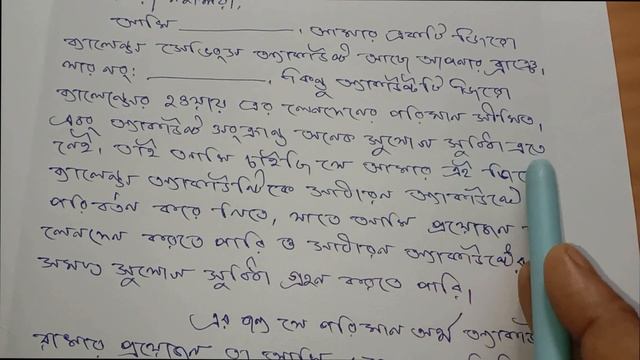 মহাশয়,
আমি ____________, আমার একটি জিরো
ব্যালেন্স সেভিংস অ্যাকাউন্ট আছে আপনার ব্রাঞ্চে,
যার নং: ____________. কিন্তু অ্যাকাউন্টটি জিরো
ব্যালেন্সের হওয়ায় এর লেনদেনের পরিমান সীমিত,
এবং অ্যাকাউন্ট সংক্রান্ত অনেক সুযোগ সুবিধা এতে
নেই, তাই আমি চাইছি যে আমার এই
ব্যালেন্স অ্যাকাউন্টটিকে সাধারন অ্যাকাউন্টে
পরিবর্তন করে নিতে, যাতে আমি প্রয়োজন
লেনদেন করতে পারি ও সাধারন অ্যাকাউন্টের
সমস্ত সুযোগ সুবিধা গ্রহন করতে পারি।
এর জন্য যে পরিমান অর্থ
রাখার প্রয়োজন তা আমি